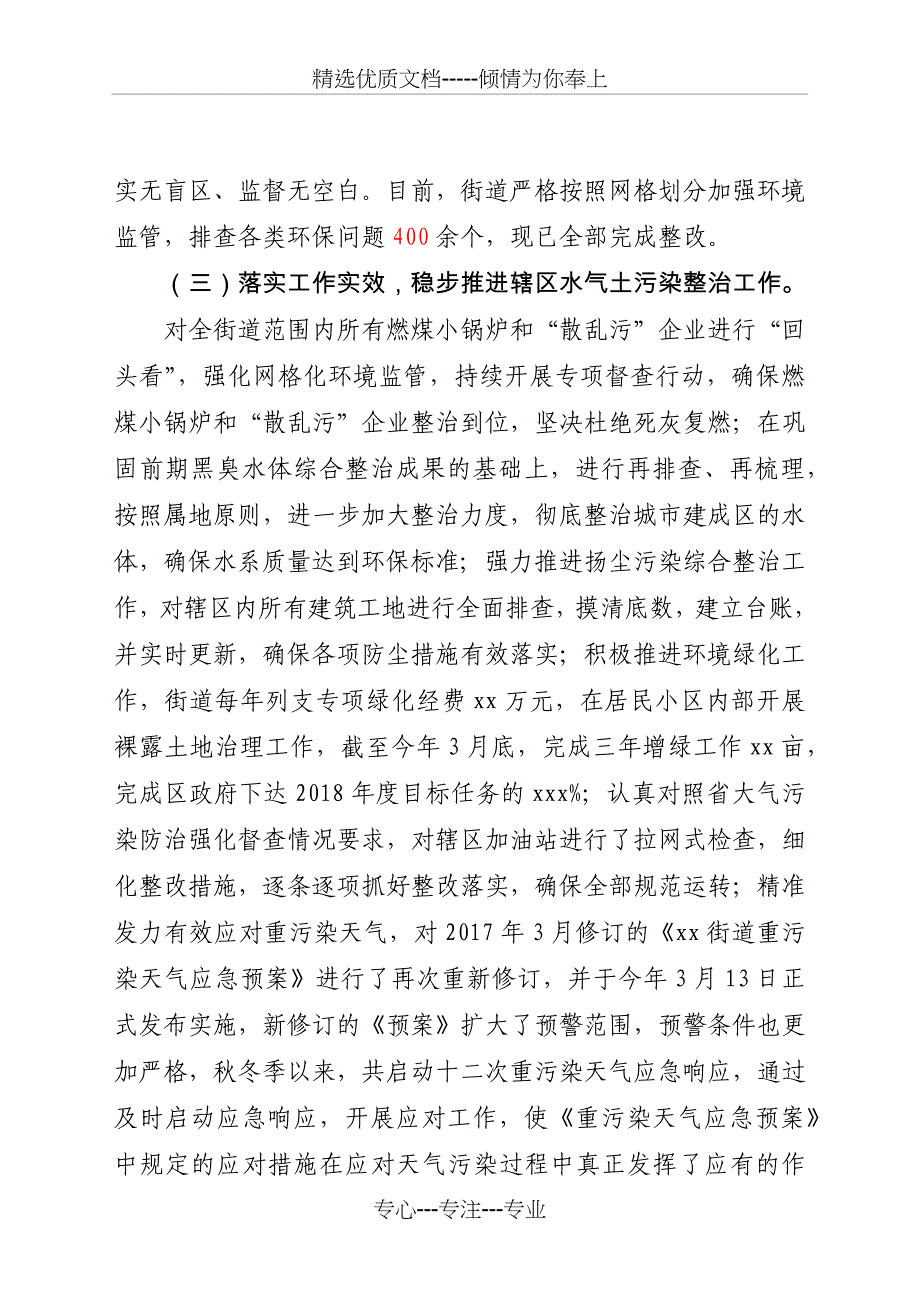 精选优质文档-----倾情为你奉上
实无盲区、监督无空白。目前，街道严格按照网格划分加强环境
监管，排查各类环保问题 400 余个，现已全部完成整改。
（三）落实工作实效，稳步推进辖区水气土污染整治工作。
对全街道范围内所有燃煤小锅炉和“散乱污”企业进行“回
头看”，强化网格化环境监管，持续开展专项督查行动，确保燃
煤小锅炉和“散乱污”企业整治到位，坚决杜绝死灰复燃；在巩
固前期黑臭水体综合整治成果的基础上，进行再排查、再梳理，
按照属地原则，进一步加大整治力度，彻底整治城市建成区的水
体，确保水系质量达到环保标准；强力推进扬尘污染综合整治工
作，对辖区内所有建筑工地进行全面排查，摸清底数，建立台账，
并实时更新，确保各项防尘措施有效落实；积极推进环境绿化工
作，街道每年列支专项绿化经费 xx 万元，在居民小区内部开展
裸露土地治理工作，截至今年 3 月底，完成三年增绿工作 xx 亩，
完成区政府下达 2018 年度目标任务的 xxx%；认真对照省大气污
染防治强化督查情况要求，对辖区加油站进行了拉网式检查，细
化整改措施，逐条逐项抓好整改落实，确保全部规范运转；精准
发力有效应对重污染天气，对 2017 年 3 月修订的《xx 街道重污
染天气应急预案》进行了再次重新修订，并于今年 3 月 13 日正
式发布实施，新修订的《预案》扩大了预警范围，预警条件也更
加严格，秋冬季以来，共启动十二次重污染天气应急响应，通过
及时启动应急响应，开展应对工作，使《重污染天气应急预案》
中规定的应对措施在应对天气污染过程中真正发挥了应有的作
专心---专注---专业